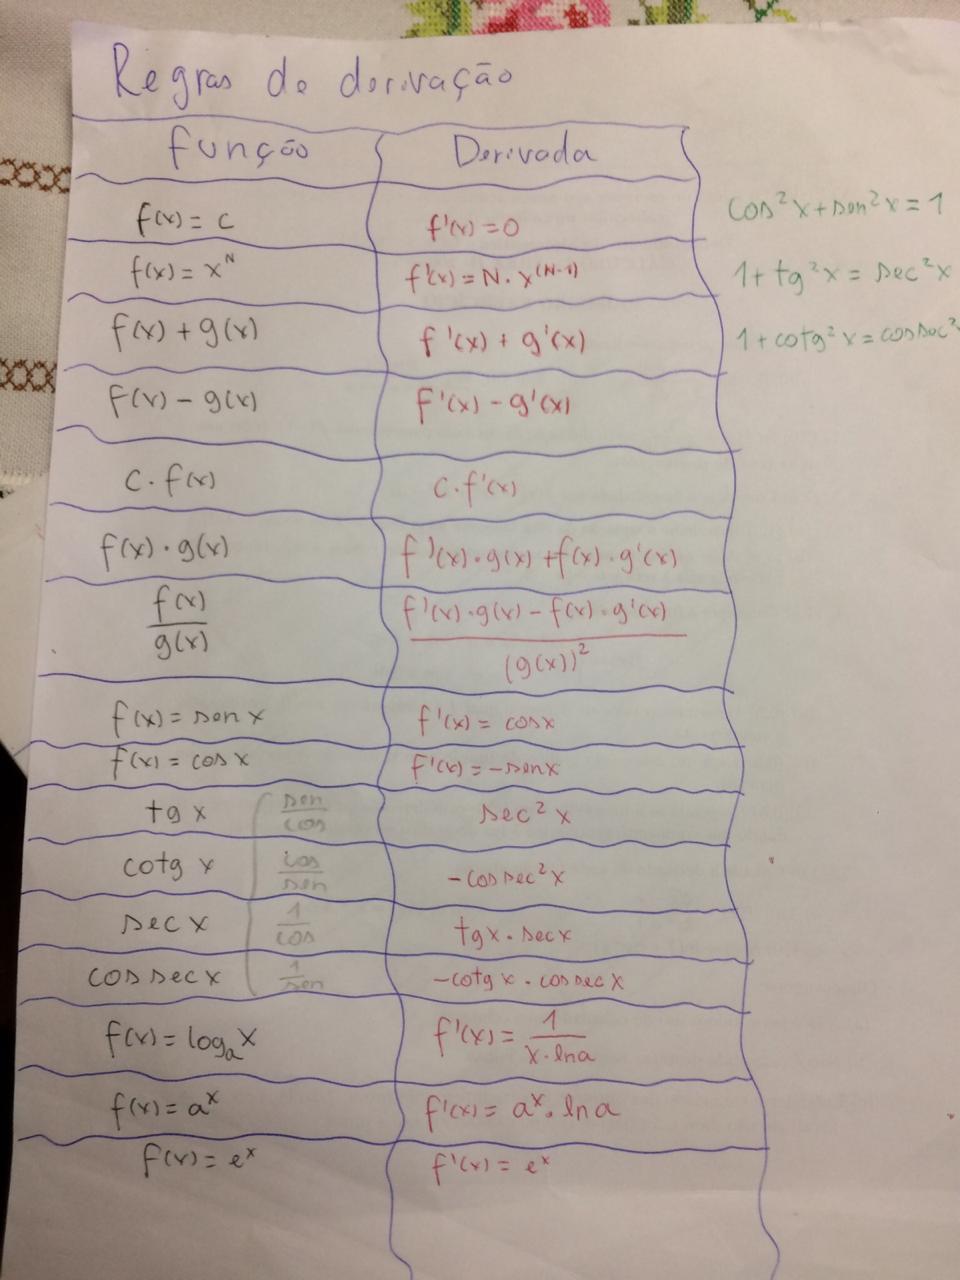 Regras de derivação
Função Derivada
f(x) = c f'(x) = 0
f(x) = x^N f'(x) = N · x^(N-1)
f(x) + g(x) f'(x) + g'(x)
f(x) - g(x) f'(x) - g'(x)
c · f(x) c · f'(x)
f(x) · g(x) f'(x) · g(x) + f(x) · g'(x)
f(x)/g(x) f'(x) · g(x) - f(x) · g'(x)/(g(x))²
f(x) = sen x f'(x) = cos x
f(x) = cos x f'(x) = -sen x
tg x sen/cos sec² x
cotg x cos/sen -cossec² x
sec x 1/cos tg x · sec x
cossec x 1/sen -cotg x · cossec x
f(x) = logₐ x f'(x) = 1/x · ln a
f(x) = a^x f'(x) = a^x · ln a
f(x) = e^x f'(x) = e^x
cos² x + sen² x = 1
1 + tg² x = sec² x
1 + cotg² x = cossec²